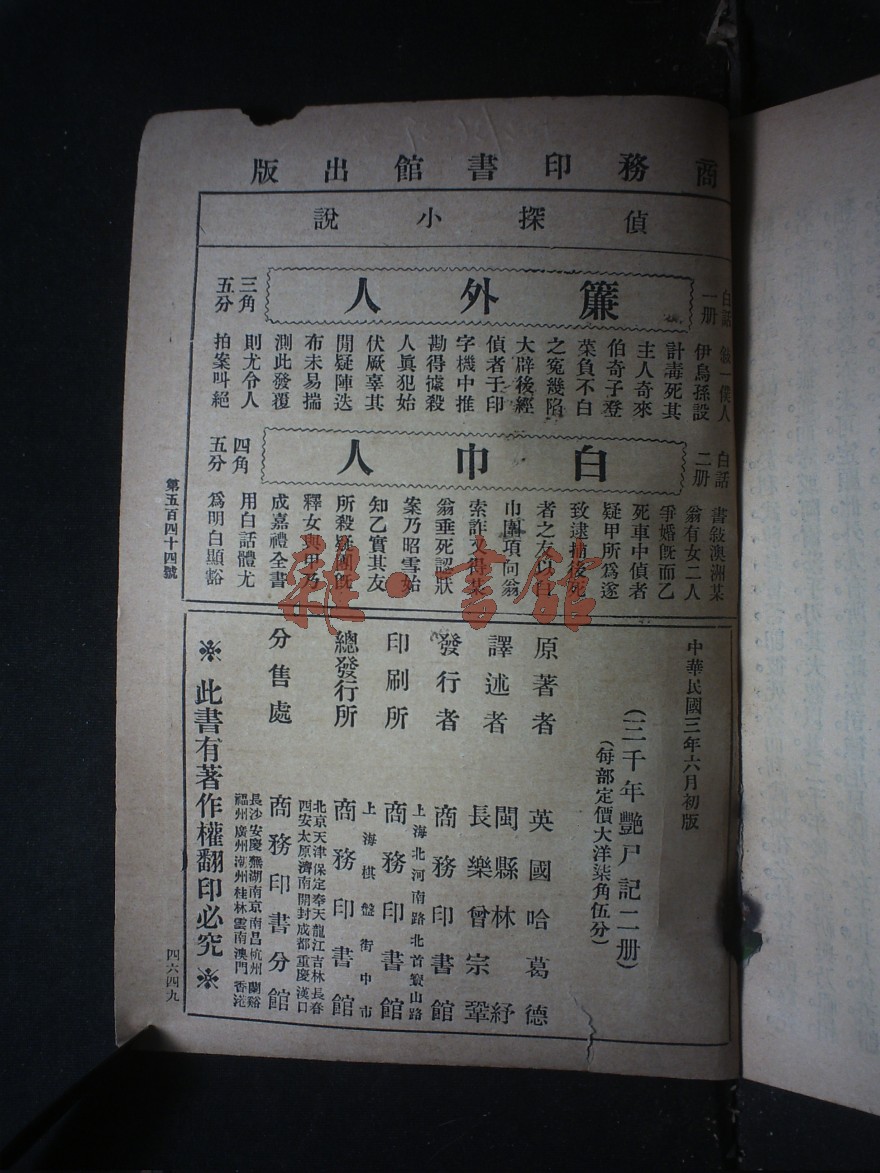 商務印書館出版
偵探小說
白話一册
簾外人
三角五分
敍一僕人
伊烏孫設
計毒死其
主人奇來
伯奇子登
菜負不白
之冤幾陷
大辟後經
偵者于印
字機中推
勘得據殺
人眞犯始
伏厥辜其
間疑陣迭
布未易揣
測此發覆
則尤令人
拍案叫絕
白話二册
白巾人
四角五分
書敍澳洲某
翁有女二人
爭婚旣而乙
死車中偵者
疑甲所爲遂
致逮捕後死
者之友以白
巾圍項向翁
索詐又得某
翁垂死認狀
案乃昭雪始
知乙實其友
所殺疑團旣
釋女與甲乃
成嘉禮全書
用白話體尤
爲明白顯豁
第五百四十四號
中華民國三年六月初版
(三千年艷尸記二册)
(每部定價大洋柒角伍分)
原著者 英國哈葛德
譯述者 閩縣林紓
長樂曾宗鞏
發行者 商務印書館
印刷所 上海北河南路北首寶山路
商務印書館
總發行所 上海棋盤街中市
商務印書館
分售處 北京天津保定奉天龍江吉林長春
西安太原濟南開封成都重慶漢口
商務印書分館
長沙安慶蕪湖南京南昌杭州蘭谿
福州廣州潮州桂林雲南澳門香港
※此書有著作權翻印必究※
四六四九
雜·書館